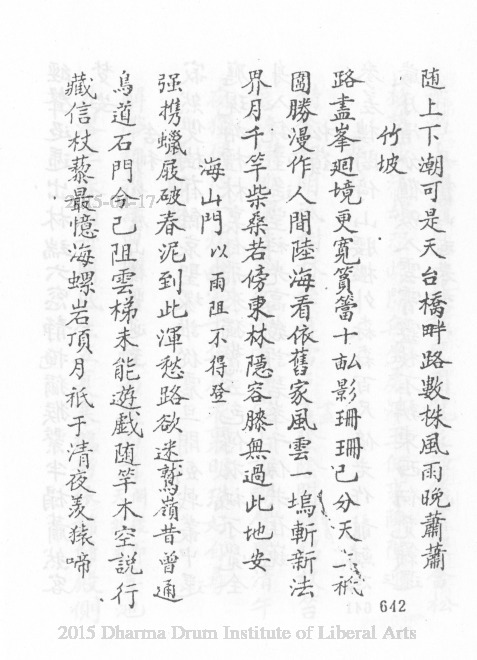 随上下潮可是天台橋畔路數株風雨晚蕭蕭
竹坡
路盡峯廻境更寬篔簹十畝影珊珊已分天
圖勝漫作人間陸海看依舊家風雲一塢斬新法
界月千竿柴桑若傍東林隱容膝無過此地安
海山門以雨阻不得登
强携蠟屐破春泥到此渾愁路欲迷鷲嶺昔曾通
鳥道石門今已阻雲梯未能遊戲随竿木空説行
藏信杖藜最憶海螺岩頂月祇于清夜羨猿啼
642
2015 Dharma Drum Institute of Liberal Arts